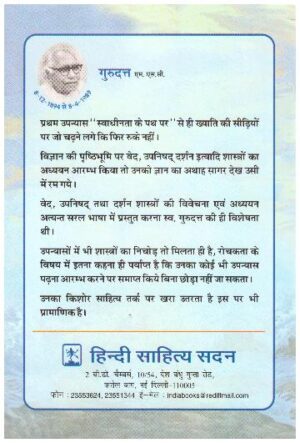 गुरुदत्त एम. एस.सी.
8-12-1894 से 8-4-1989
प्रथम उपन्यास "स्वाधीनता के पथ पर" से ही ख्याति की सीढ़ियों
पर जो चढ़ने लगे कि फिर रुके नहीं।
विज्ञान की पृष्ठभूमि पर वेद, उपनिषद् दर्शन इत्यादि शास्त्रों का
अध्ययन आरम्भ किया तो उनको ज्ञान का अथाह सागर देख उसी
में रम गये।
वेद, उपनिषद् तथा दर्शन शास्त्रों की विवेचना एवं अध्ययन
अत्यन्त सरल भाषा में प्रस्तुत करना स्व. गुरुदत्त की ही विशेषता
थी।
उपन्यासों में भी शास्त्रों का निचोड़ तो मिलता ही है, रोचकता के
विषय में इतना कहना ही पर्याप्त है कि उनका कोई भी उपन्यास
पढ़ना आरम्भ करने पर समाप्त किये बिना छोड़ा नहीं जा सकता।
उनका किशोर साहित्य तर्क पर खरा उतरता है इस पर भी
प्रामाणिक है।
हिन्दी साहित्य सदन
2 बी.डी. चैम्बर्स, 10/54, देश बंधु गुप्ता रोड,
करोल बाग, नई दिल्ली-110005
फोन : 23553624, 23551344 ई-मेल : indiabooks@rediffmail.com